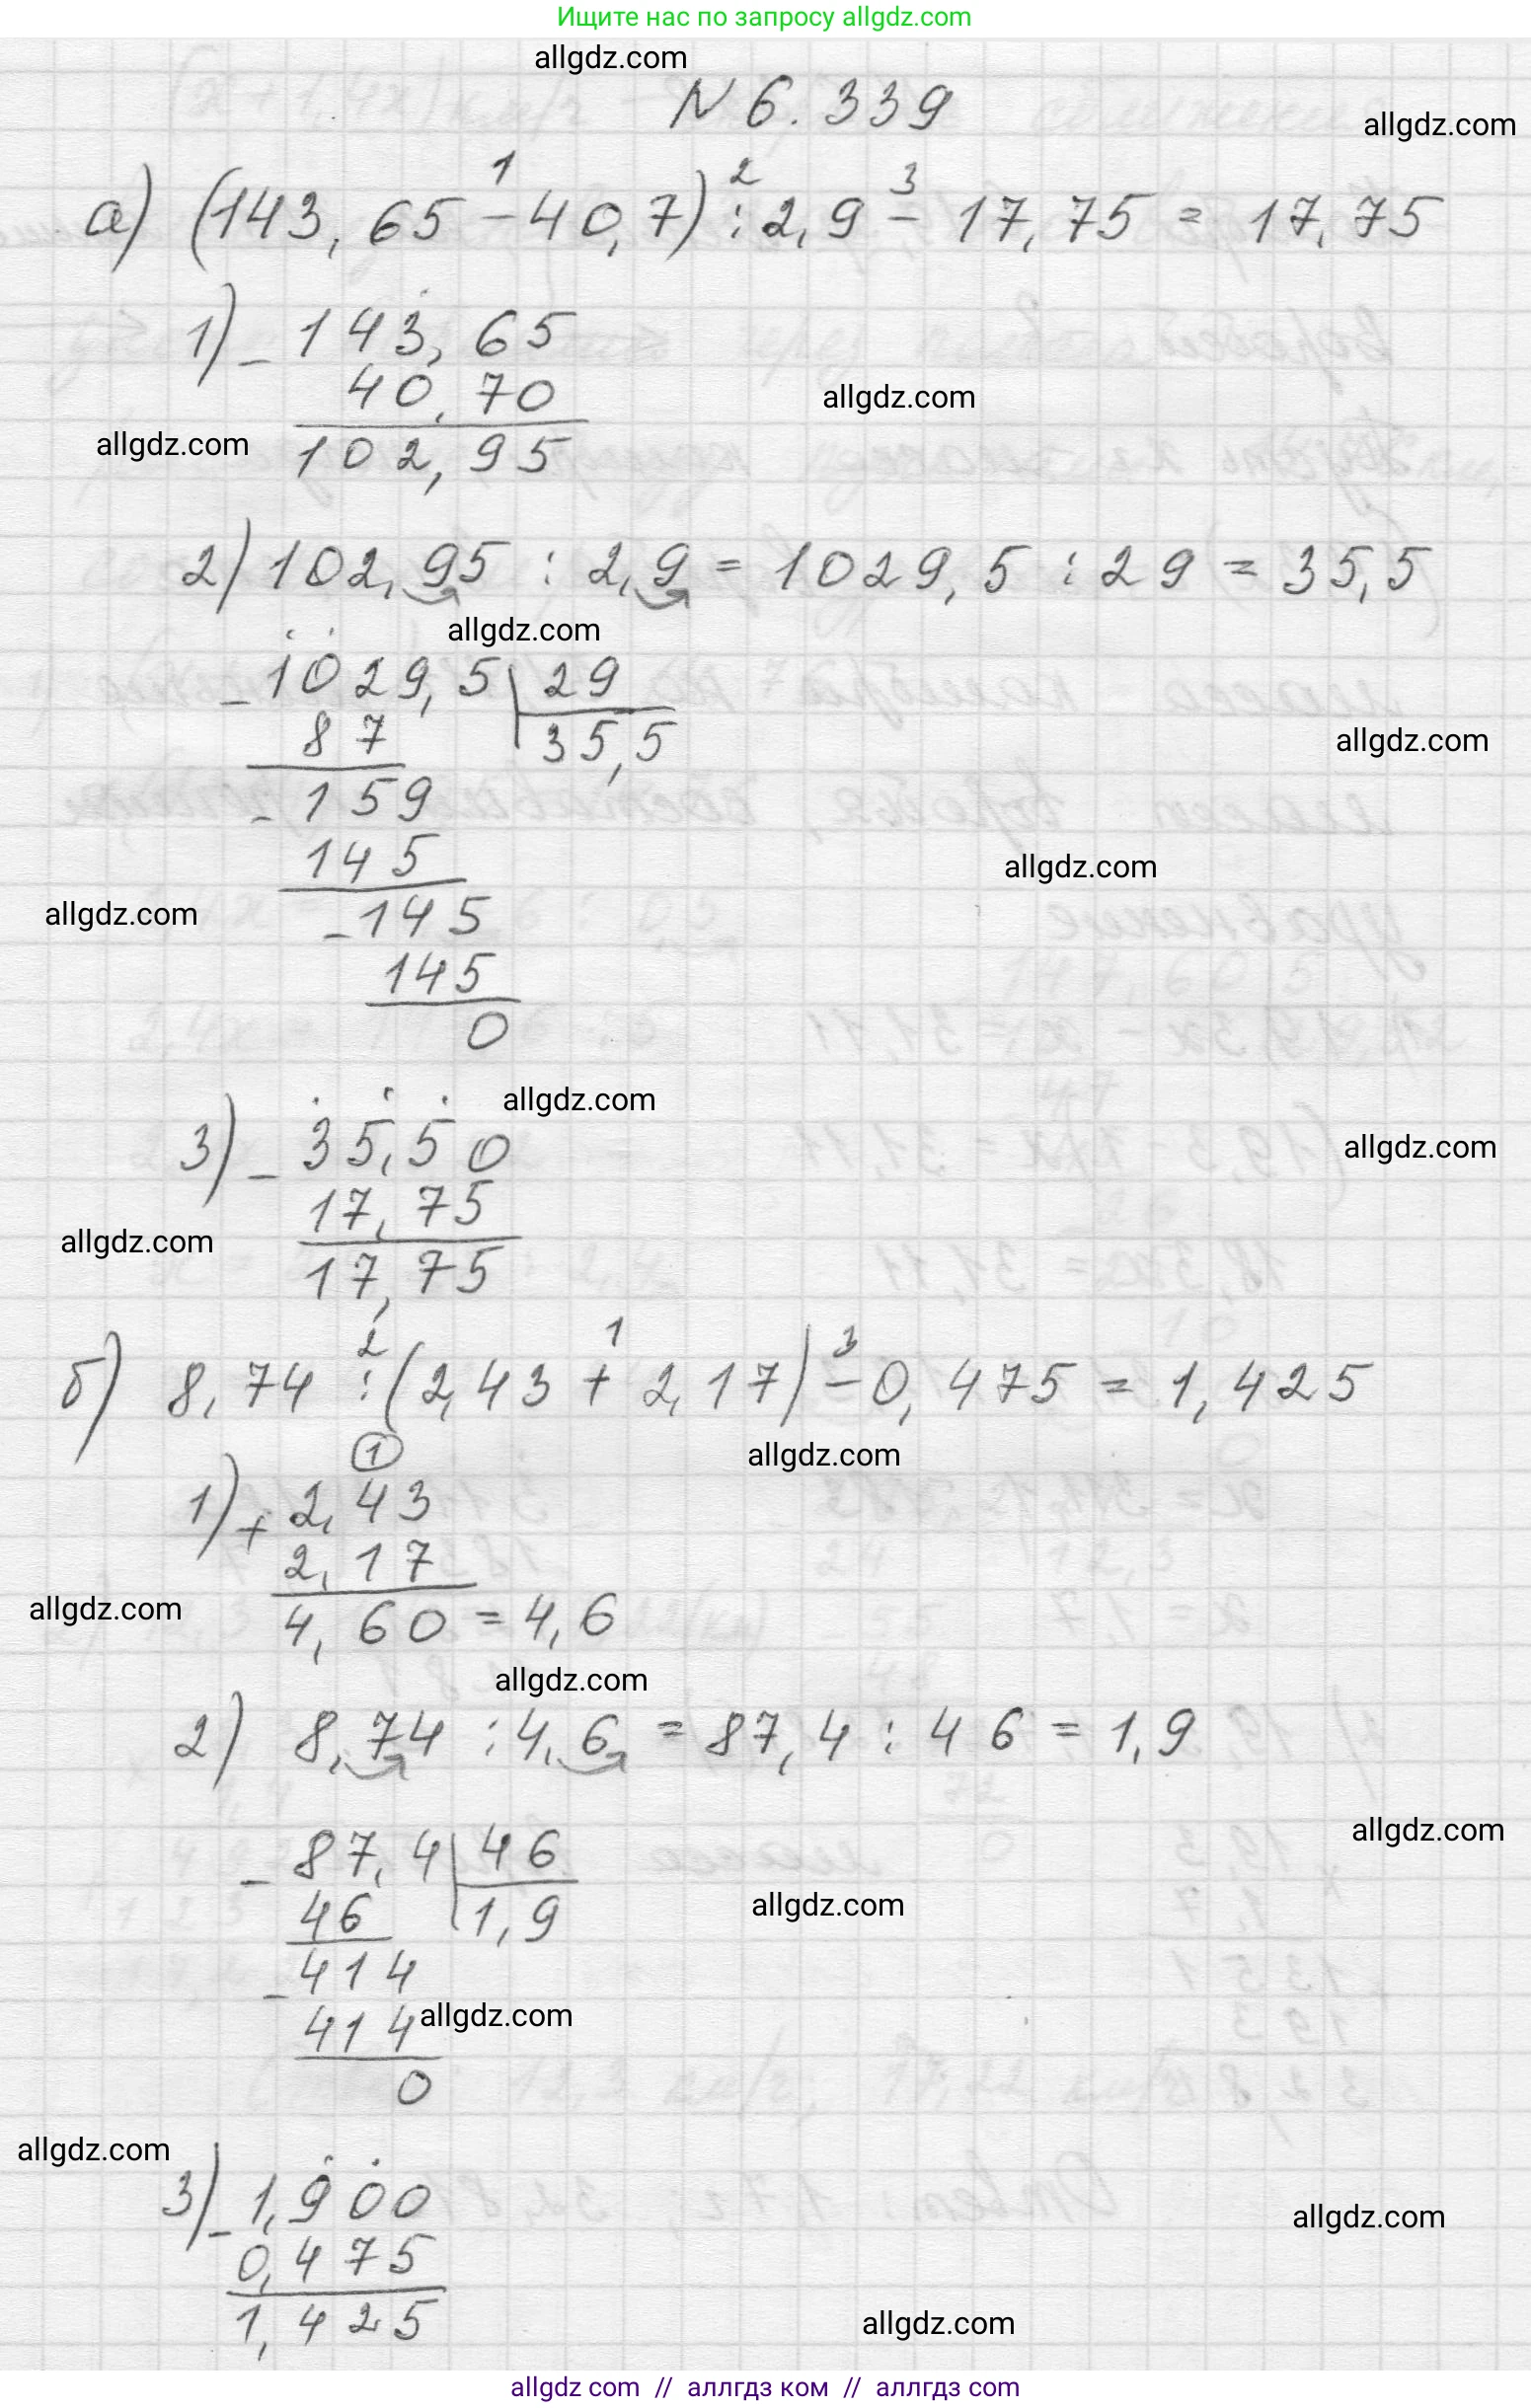 Ищите нас по запросу allgdz.com
allgdz.com
N 6.339
allgdz.com
1 2 3
а) (143,65 - 40,7) : 2,9 - 17,75 = 17,75
1) - 143,65
40,70
allgdz.com
allgdz.com
102,95
2) 102,95 : 2,9 = 1029,5 : 29 = 35,5
allgdz.com
- 1029,5 29
87 35,5
allgdz.com
- 159
145
allgdz.com
allgdz.com
- 145
145
0
allgdz.com
3) - 35,50
allgdz.com
17,75
allgdz.com
17,75
2 1 3
б) 8,74 : (2,43 + 2,17) - 0,475 = 1,425
1
allgdz.com
1) + 2,43
2,17
allgdz.com
4,60 = 4,6
allgdz.com
2) 8,74 : 4,6 = 87,4 : 46 = 1,9
allgdz.com
- 87,4 46
46 1,9
allgdz.com
- 414
414
allgdz.com
0
allgdz.com
3) - 1,900
allgdz.com
0,475
1,425
allgdz.com
allgdz com // аллгдз ком // аллгдз com